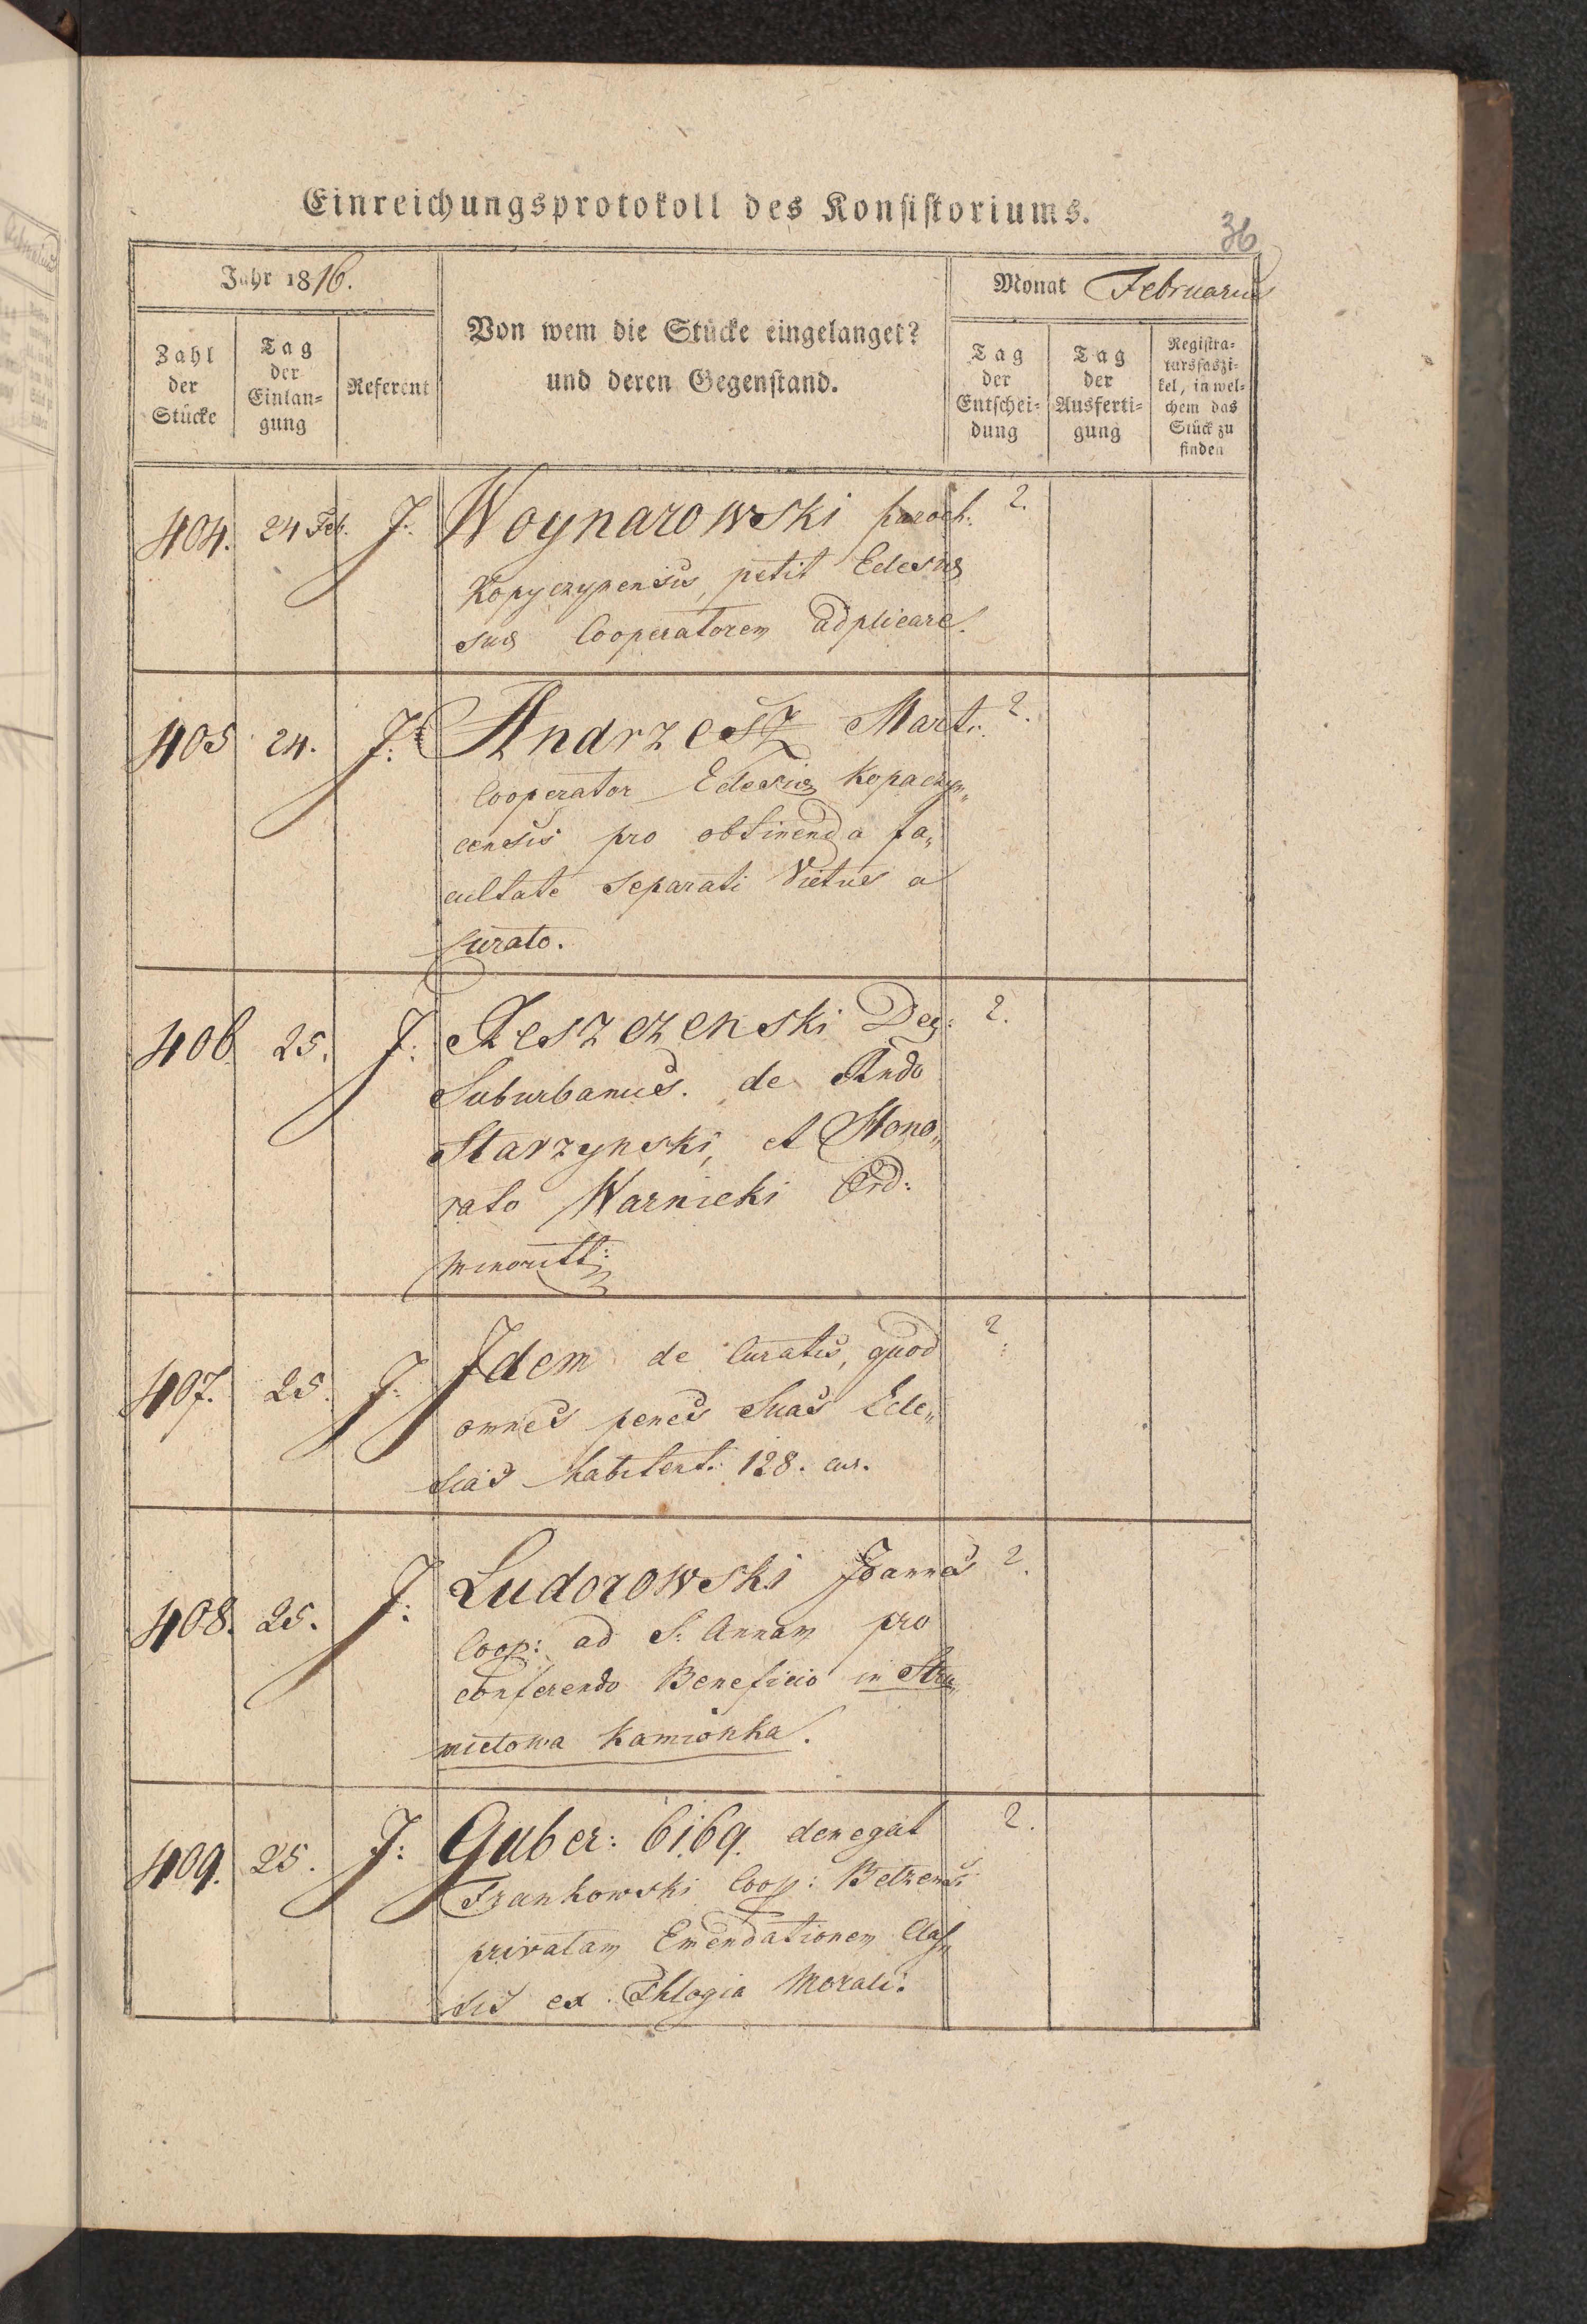 Einreichungsprotokoll des Konsistoriums.
36
Jahr 1816.
Von wem die Stücke eingelanget?
und deren Gegenstand.
Monat Februarius
Zahl
der
Stücke
Tag
der
Einlan-
gung
Referent
Tag
der
Entschei-
dung
Tag
der
Ausferti-
gung
Registra-
tursfaszi-
kel, in wel-
chem das
Stück zu
finden
404. 24 Feb. J: Woynarowski paroch: 2.
Kopyczynensis, petit Eclesiæ
suæ Cooperatorem adplicare.
405 24. J: Andrzesz Mart: 2.
Cooperator Eclesiæ Kopaczyn„
censis pro obtinenda fa„
cultate separati Victus a
Curato.
406 25. J: Leszczenski Dec: 2.
Suburbanus. de Ando
Starzynski, et Hono„
rato Warnicki Ord:
Minoritt:
407. 25. J: Idem de Curatis, quod 2.
omnes penes suas Ecle„
sias habitent. 128. cur.
408. 25. J: Ludorowski Joannes 2.
Coop: ad S. Annam pro
conferendo Beneficio in Stru„
mietowa Kamionka.
409. 25. J: Guber: 6169. denegat 2.
Frankowski Coop: Betzensi
privatam Emendationem Clas„
sis ex Thlogia Morali.